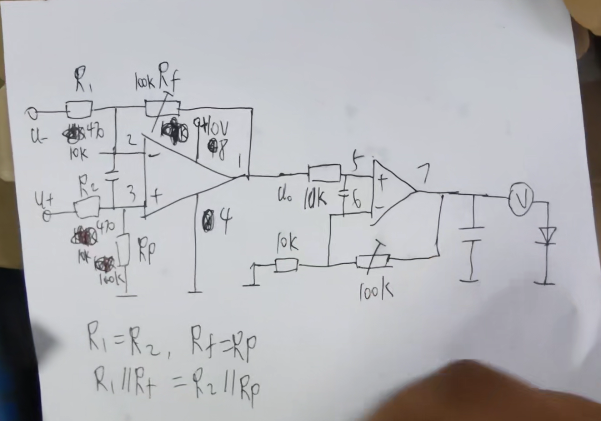 R₁
100k Rf
u-
470
10k
+10V
8
2
-
1
R₂
3
+
u+
470
10k
Rp
100k
4
u₀
10k
5
+
6
-
7
V
10k
100k
R₁=R₂, Rf=Rp
R₁//Rf = R₂//Rp